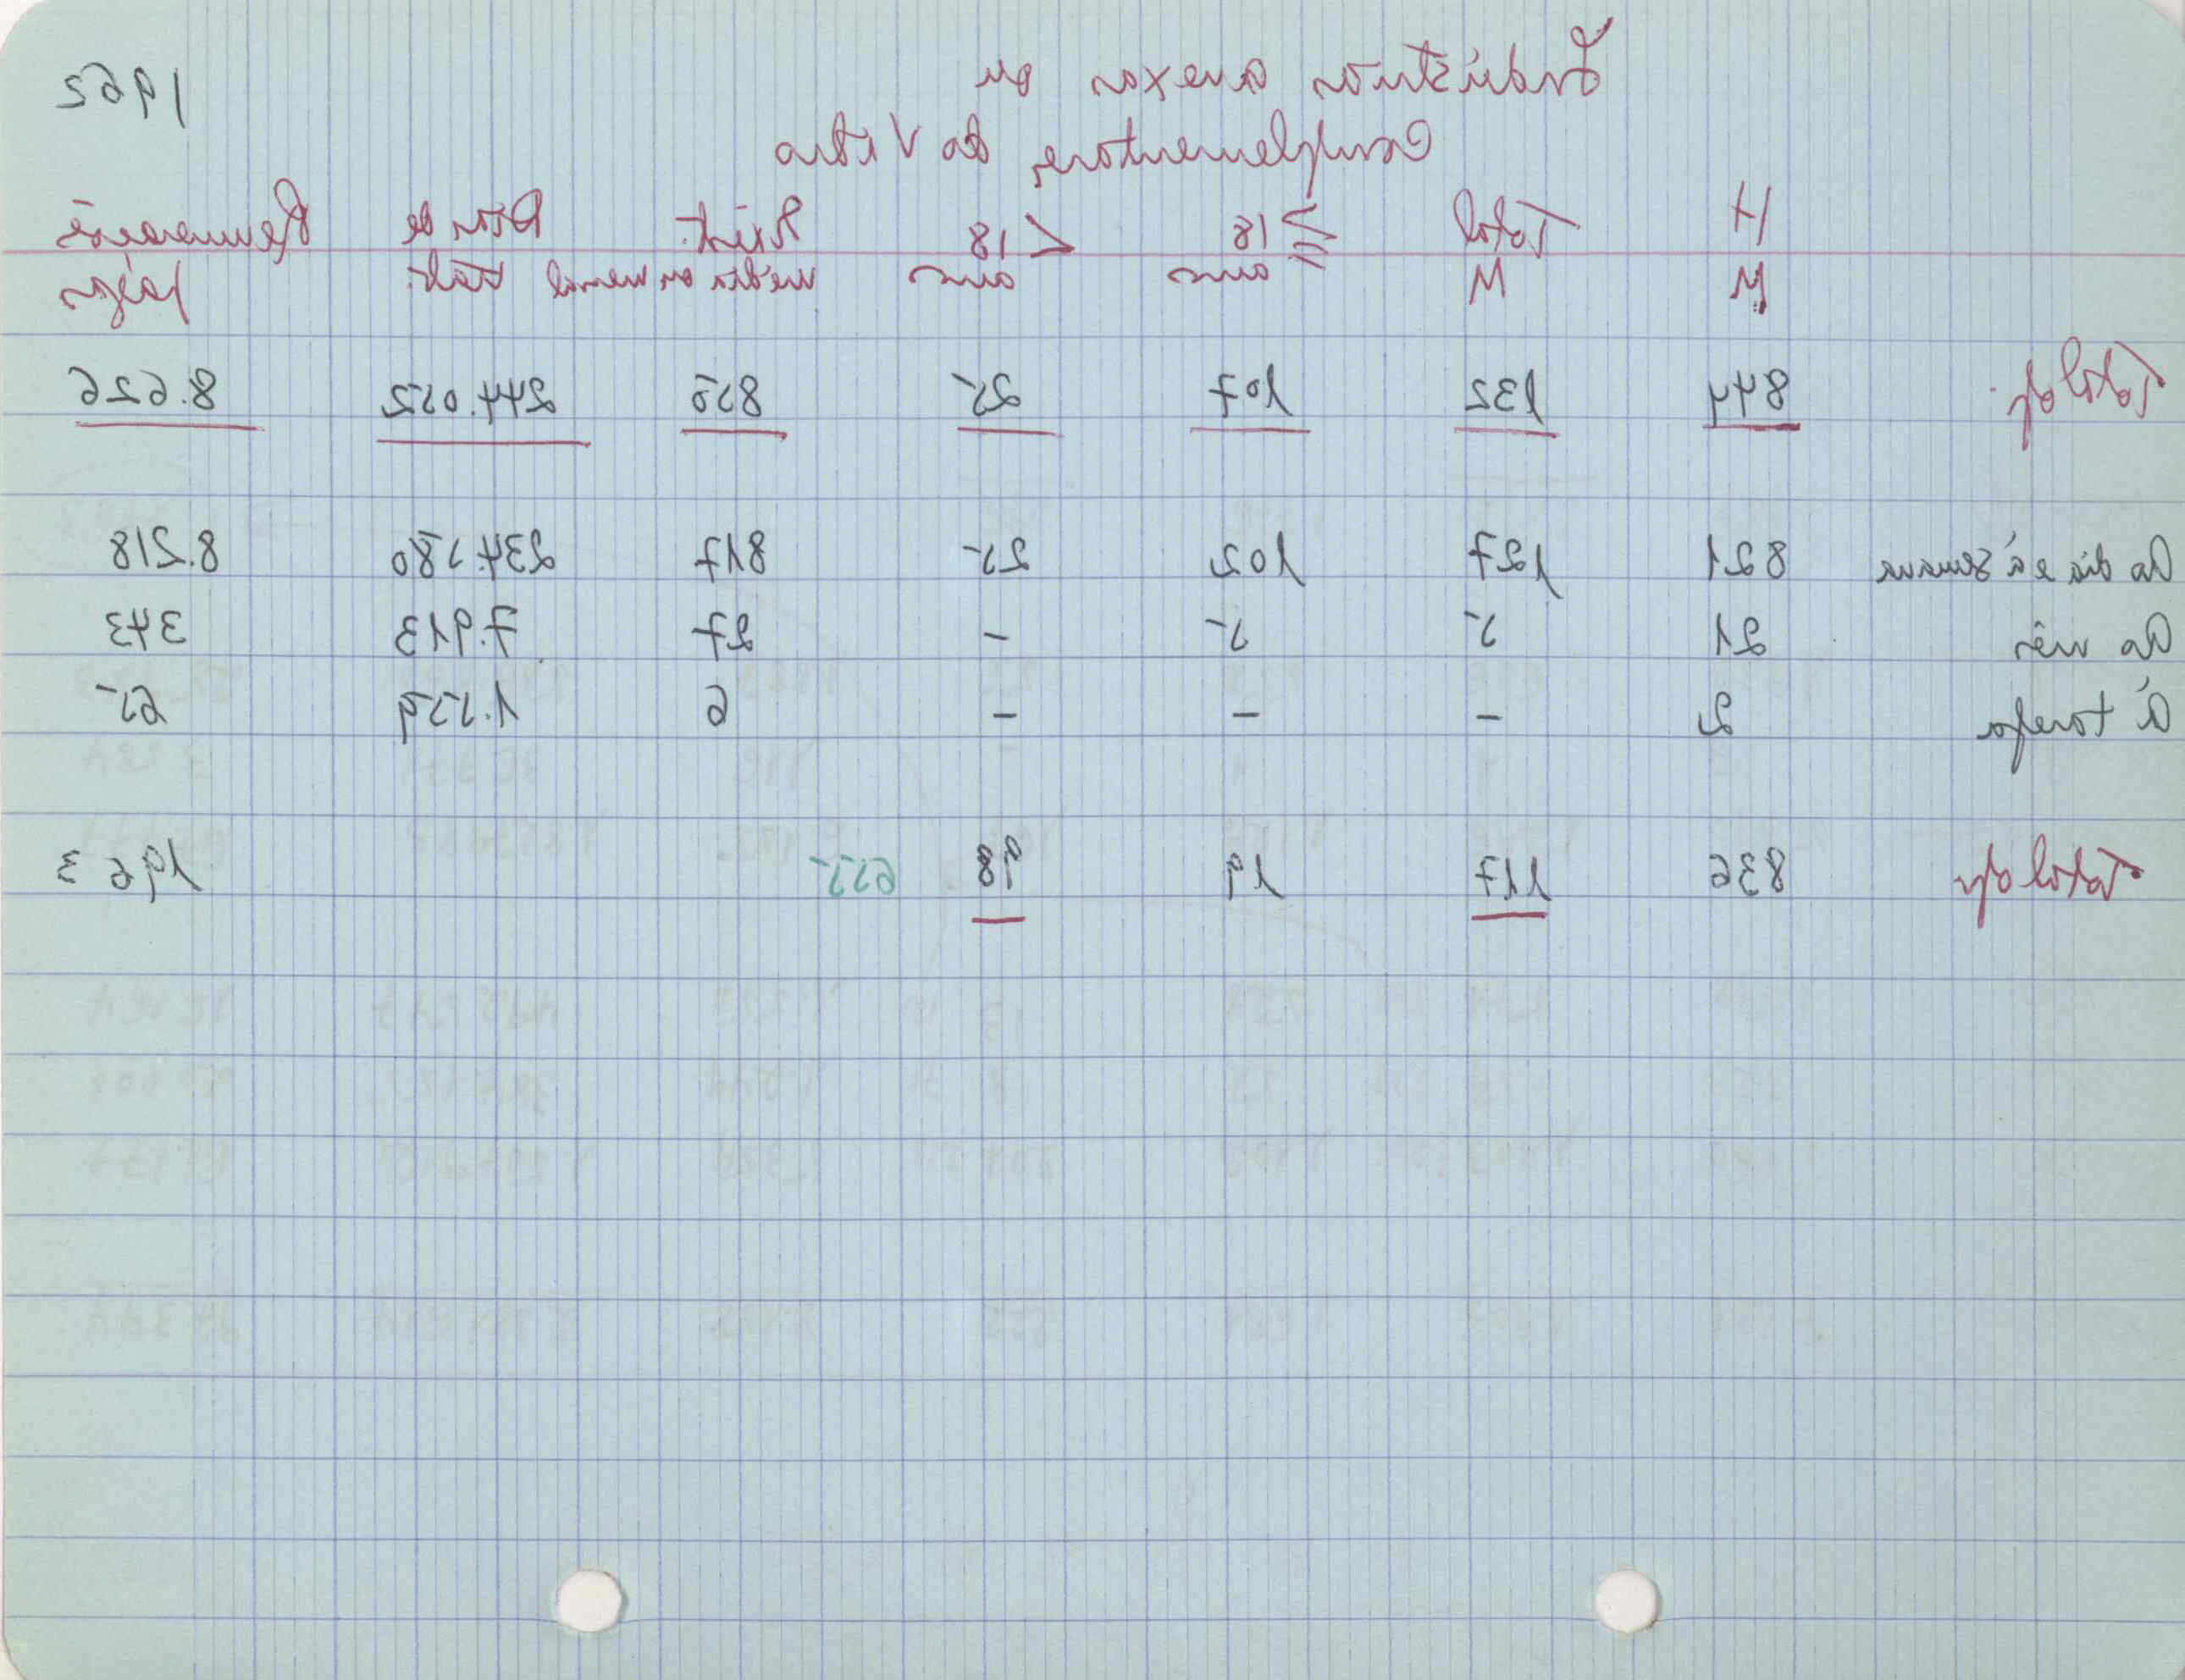 Indústrias anexas ou 1962
Complementares do Vidro
H Total ≥ 18 < 18 Exist. Dias de Remunerações
M M anos anos média ou mensal trab. pagas
Total g. 844 132 107 25 850 244.052 8.626
Ao dia e à semana 821 127 102 25 817 234.580 8.218
Ao mês 21 5 5 - 27 7.913 343
À tarefa 2 - - - 6 1.559 65
Total g. 836 117 19 98 655 1963